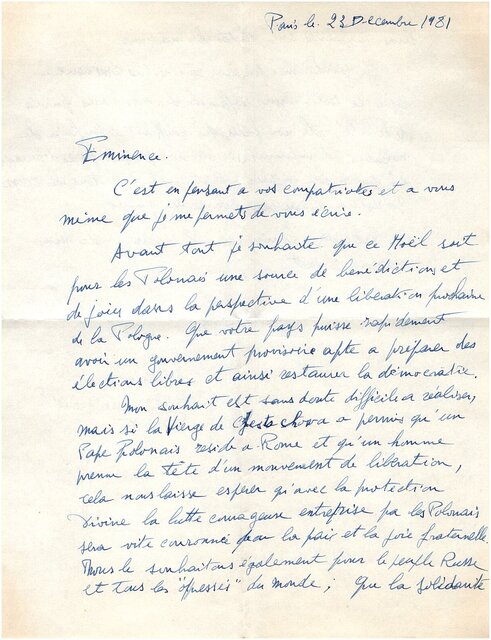 Paris le. 23 Decembre 1981
Eminence.
C'est en pensant a vos compatriotes et a vous
même que je me permets de vous écrire.
Avant tout je souhaite que ce Noël soit
pour les Polonais une source de bénédictions et
de joies dans la perspective d'une libération prochaine
de la Pologne. Que votre pays puisse rapidement
avoir un gouvernement provisoire apte a préparer des
élections libres et ainsi restaurer la démocratie.
Mon souhait est sans doute difficile a réaliser,
mais si la Vierge de a permis qu'un
Pape Polonais reside a Rome et qu'un homme
prenne la tête d'un mouvement de libération,
cela nous laisse espérer qu'avec la protection
Divine la lutte courageuse entreprise par les Polonais
sera vite couronnée par la paix et la joie fraternelle.
Nous le souhaitons également pour le peuple Russe
et tous les "opressés" du monde ; que la solidarité